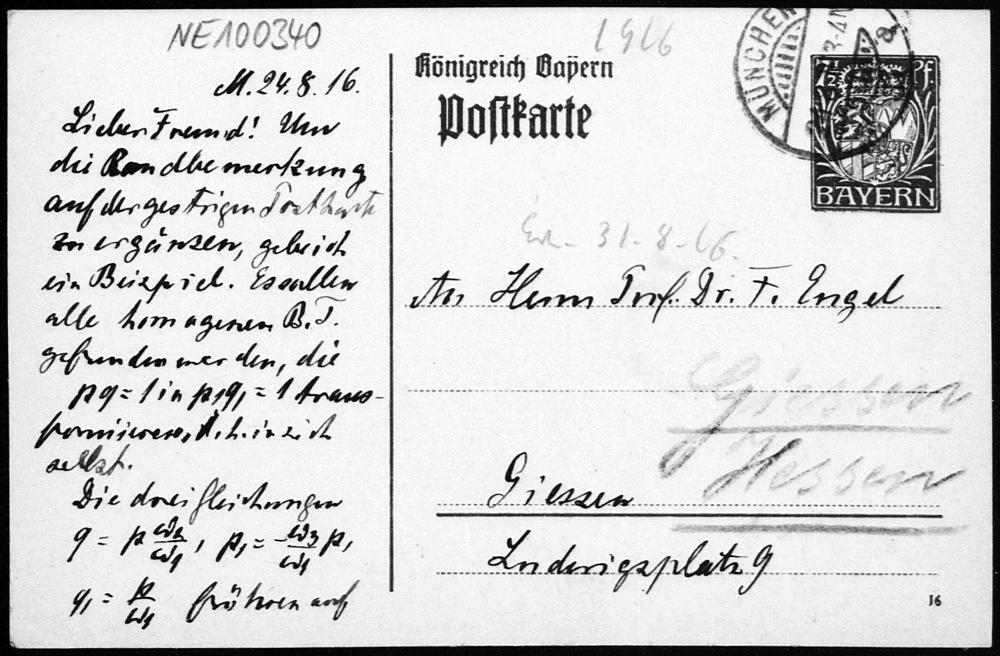 NE100340
1916
M. 24. 8. 16.
Lieber Freund! Um
die Randbemerkung
auf der gestrigen Postkarte
zu ergänzen, gebe ich
ein Beispiel. Es sollen
alle homogenen B. T.
gefunden werden, die
pq = 1 in p₁q₁ = 1 trans-
formieren, d. h. in sich
selbst.
Die drei Gleichungen
q = p ω₂/ω₁, p₁ = ω₃/ω₁ p,
q₁ = p/ω₁ führen auf
Königreich Bayern
Postkarte
MÜNCHEN
7½ Pf
BAYERN
31-8-16.
An Herrn Prof. Dr. F. Engel
Giessen
Hessen
Giessen
Ludwigsplatz 9
16